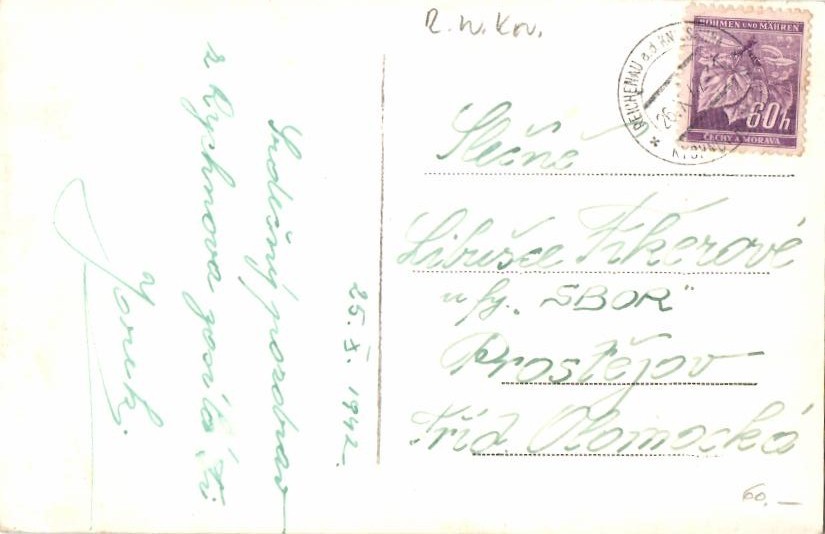 R. n. Kn.
BÖHMEN UND MÄHREN
60h
ČECHY A MORAVA
REICHENAU a.d. KN
26. X. 42
Slečně
Libušce Fikerové
u fy. „SBOR"
Prostějov
Tříd. Olomocká
60,—
25. X. 1942.
Srdečný pozdrav
z Rychnova posílá Ti